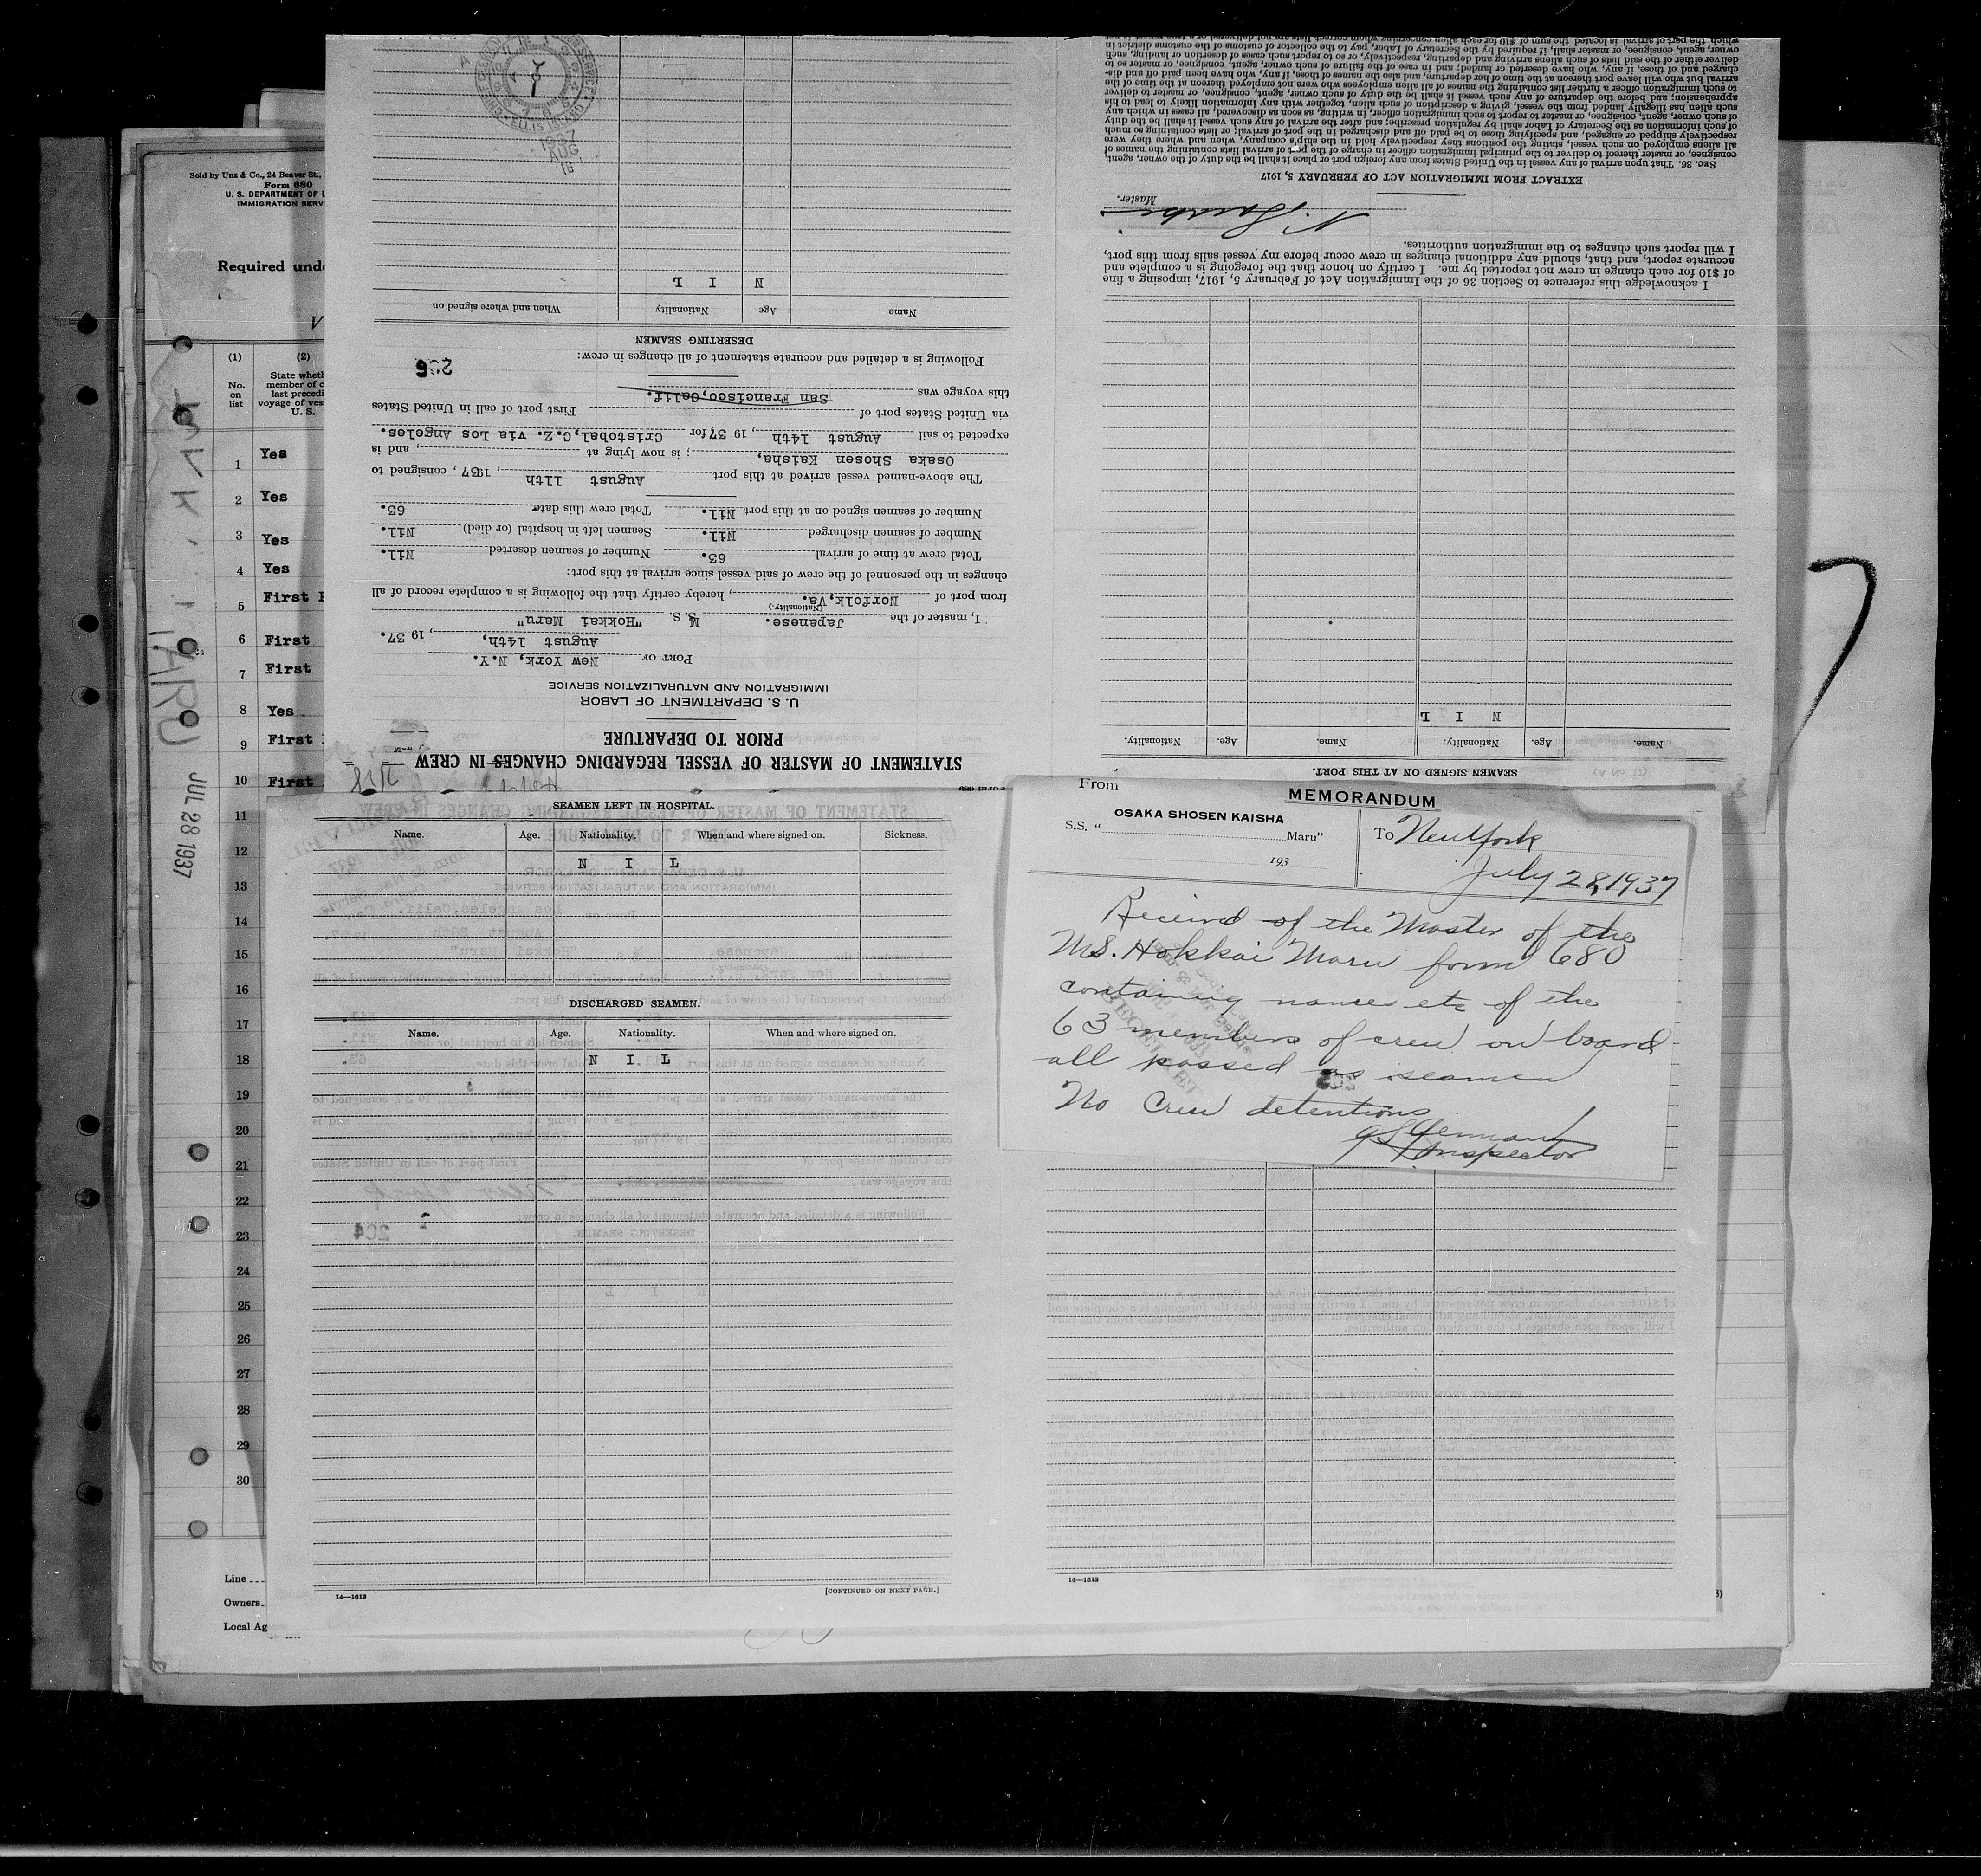 Sold by Unz & Co., 24 Beaver St.,
Form 680
U. S. DEPARTMENT OF L
IMMIGRATION SERV
Required unde
V
(1)
(2)
No.
on
list
State wheth
member of c
last precedi
voyage of ves
U. S.
1 Yes
2 Yes
3 Yes
4 Yes
5 First
6 First
7 First
8 Yes
9 First
10 First
11
12
13
14
15
16
17
18
19
20
21
22
23
24
25
26
27
28
29
30
Line
Owners
Local Ag
JUL 28 1937
MARU
STATEMENT OF MASTER OF VESSEL REGARDING CHANGES IN CREW
PRIOR TO DEPARTURE
U. S. DEPARTMENT OF LABOR
IMMIGRATION AND NATURALIZATION SERVICE
PORT OF New York, N.Y.
August 14th, , 19 37.
I, master of the Japanese. M. S. "Hokkai Maru"
(Nationality.)
from port of Norfolk,Va. , hereby certify that the following is a complete record of all
changes in the personnel of the crew of said vessel since arrival at this port:
Total crew at time of arrival 63. Number of seamen deserted Nil.
Number of seamen discharged Nil. Seamen left in hospital (or died) Nil.
Number of seamen signed on at this port Nil. Total crew this date 63.
The above-named vessel arrived at this port August 11th , 1937 , consigned to
Osaka Shosen Kaisha, ; is now lying at , and is
expected to sail August 14th , 19 37 for Cristobal,C.Z. via Los Angeles.
via United States port of First port of call in United States
this voyage was San Francisco,Calif.
Following is a detailed and accurate statement of all changes in crew:
DESERTING SEAMEN
Name Age Nationality When and where signed on
N I L
1937
AUG
16
SEAMEN SIGNED ON AT THIS PORT.
Name. Age. Nationality. Name. Age. Nationality.
N I L
I acknowledge this reference to Section 36 of the Immigration Act of February 5, 1917, imposing a fine
of $10 for each change in crew not reported by me. I certify on honor that the foregoing is a complete and
accurate report, and that, should any additional changes in crew occur before my vessel sails from this port,
I will report such changes to the immigration authorities.
Master.
EXTRACT FROM IMMIGRATION ACT OF FEBRUARY 5, 1917
SEC. 36. That upon arrival of any vessel in the United States from any foreign port or place it shall be the duty of the owner, agent,
consignee, or master thereof to deliver to the principal immigration officer in charge of the port of arrival lists containing the names of
all aliens employed on such vessel, stating the positions they respectively hold in the ship's company, when and where they were
respectively shipped or engaged, and specifying those to be paid off and discharged in the port of arrival; or lists containing so much
of such information as the Secretary of Labor shall by regulation prescribe; and after the arrival of any such vessel it shall be the duty
of such owner, agent, consignee, or master to report to such immigration officer, in writing, as soon as discovered, all cases in which any
such alien has illegally landed from the vessel, giving a description of such alien, together with any information likely to lead to his
apprehension; and before the departure of any such vessel it shall be the duty of such owner, agent, consignee, or master to deliver
to such immigration officer a further list containing the names of all alien employees who were not employed thereon at the time of the
arrival but who will leave port thereon at the time of her departure, and also the names of those, if any, who have been paid off and dis-
charged and of those, if any, who have deserted or landed; and in case of the failure of such owner, agent, consignee, or master so to
deliver either of the said lists of such aliens arriving and departing, respectively, or so to report such cases of desertion or landing, such
owner, agent, consignee, or master shall, if required by the Secretary of Labor, pay to the collector of customs of the customs district in
which the port of arrival is located the sum of $10 for each alien concerning whom correct lists are not delivered or a true report is not
SEAMEN LEFT IN HOSPITAL.
Name. Age. Nationality. When and where signed on. Sickness.
N I L
DISCHARGED SEAMEN.
Name. Age. Nationality. When and where signed on.
N I L
14—1613
[CONTINUED ON NEXT PAGE.]
From
MEMORANDUM
OSAKA SHOSEN KAISHA
S.S. " Maru"
193
To New York
July 28, 1937
Received of the Master of the
MS. Hokkai Maru form 680
containing names etc of the
63 members of crew on board
all passed as seamen
No Crew detentions
Inspector
14—1613